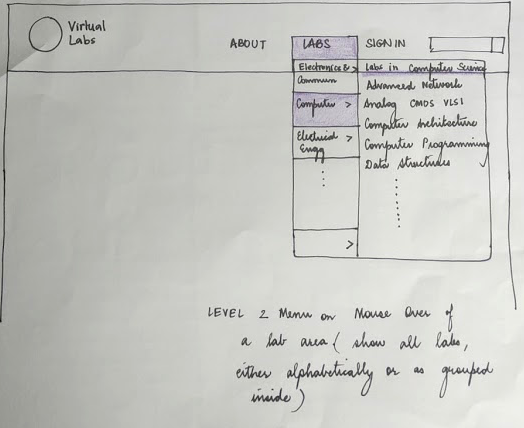 Virtual
Labs
ABOUT
LABS
SIGN IN
Electronics & >
Commun
Computer >
Electrical >
Engg
>
Labs in Computer Science
Advanced Network
Analog CMOS VLSI
Computer Architecture
Computer Programming
Data Structures
LEVEL 2 Menu on Mouse Over of
a lab area ( show all labs,
either alphabetically or as grouped
inside )